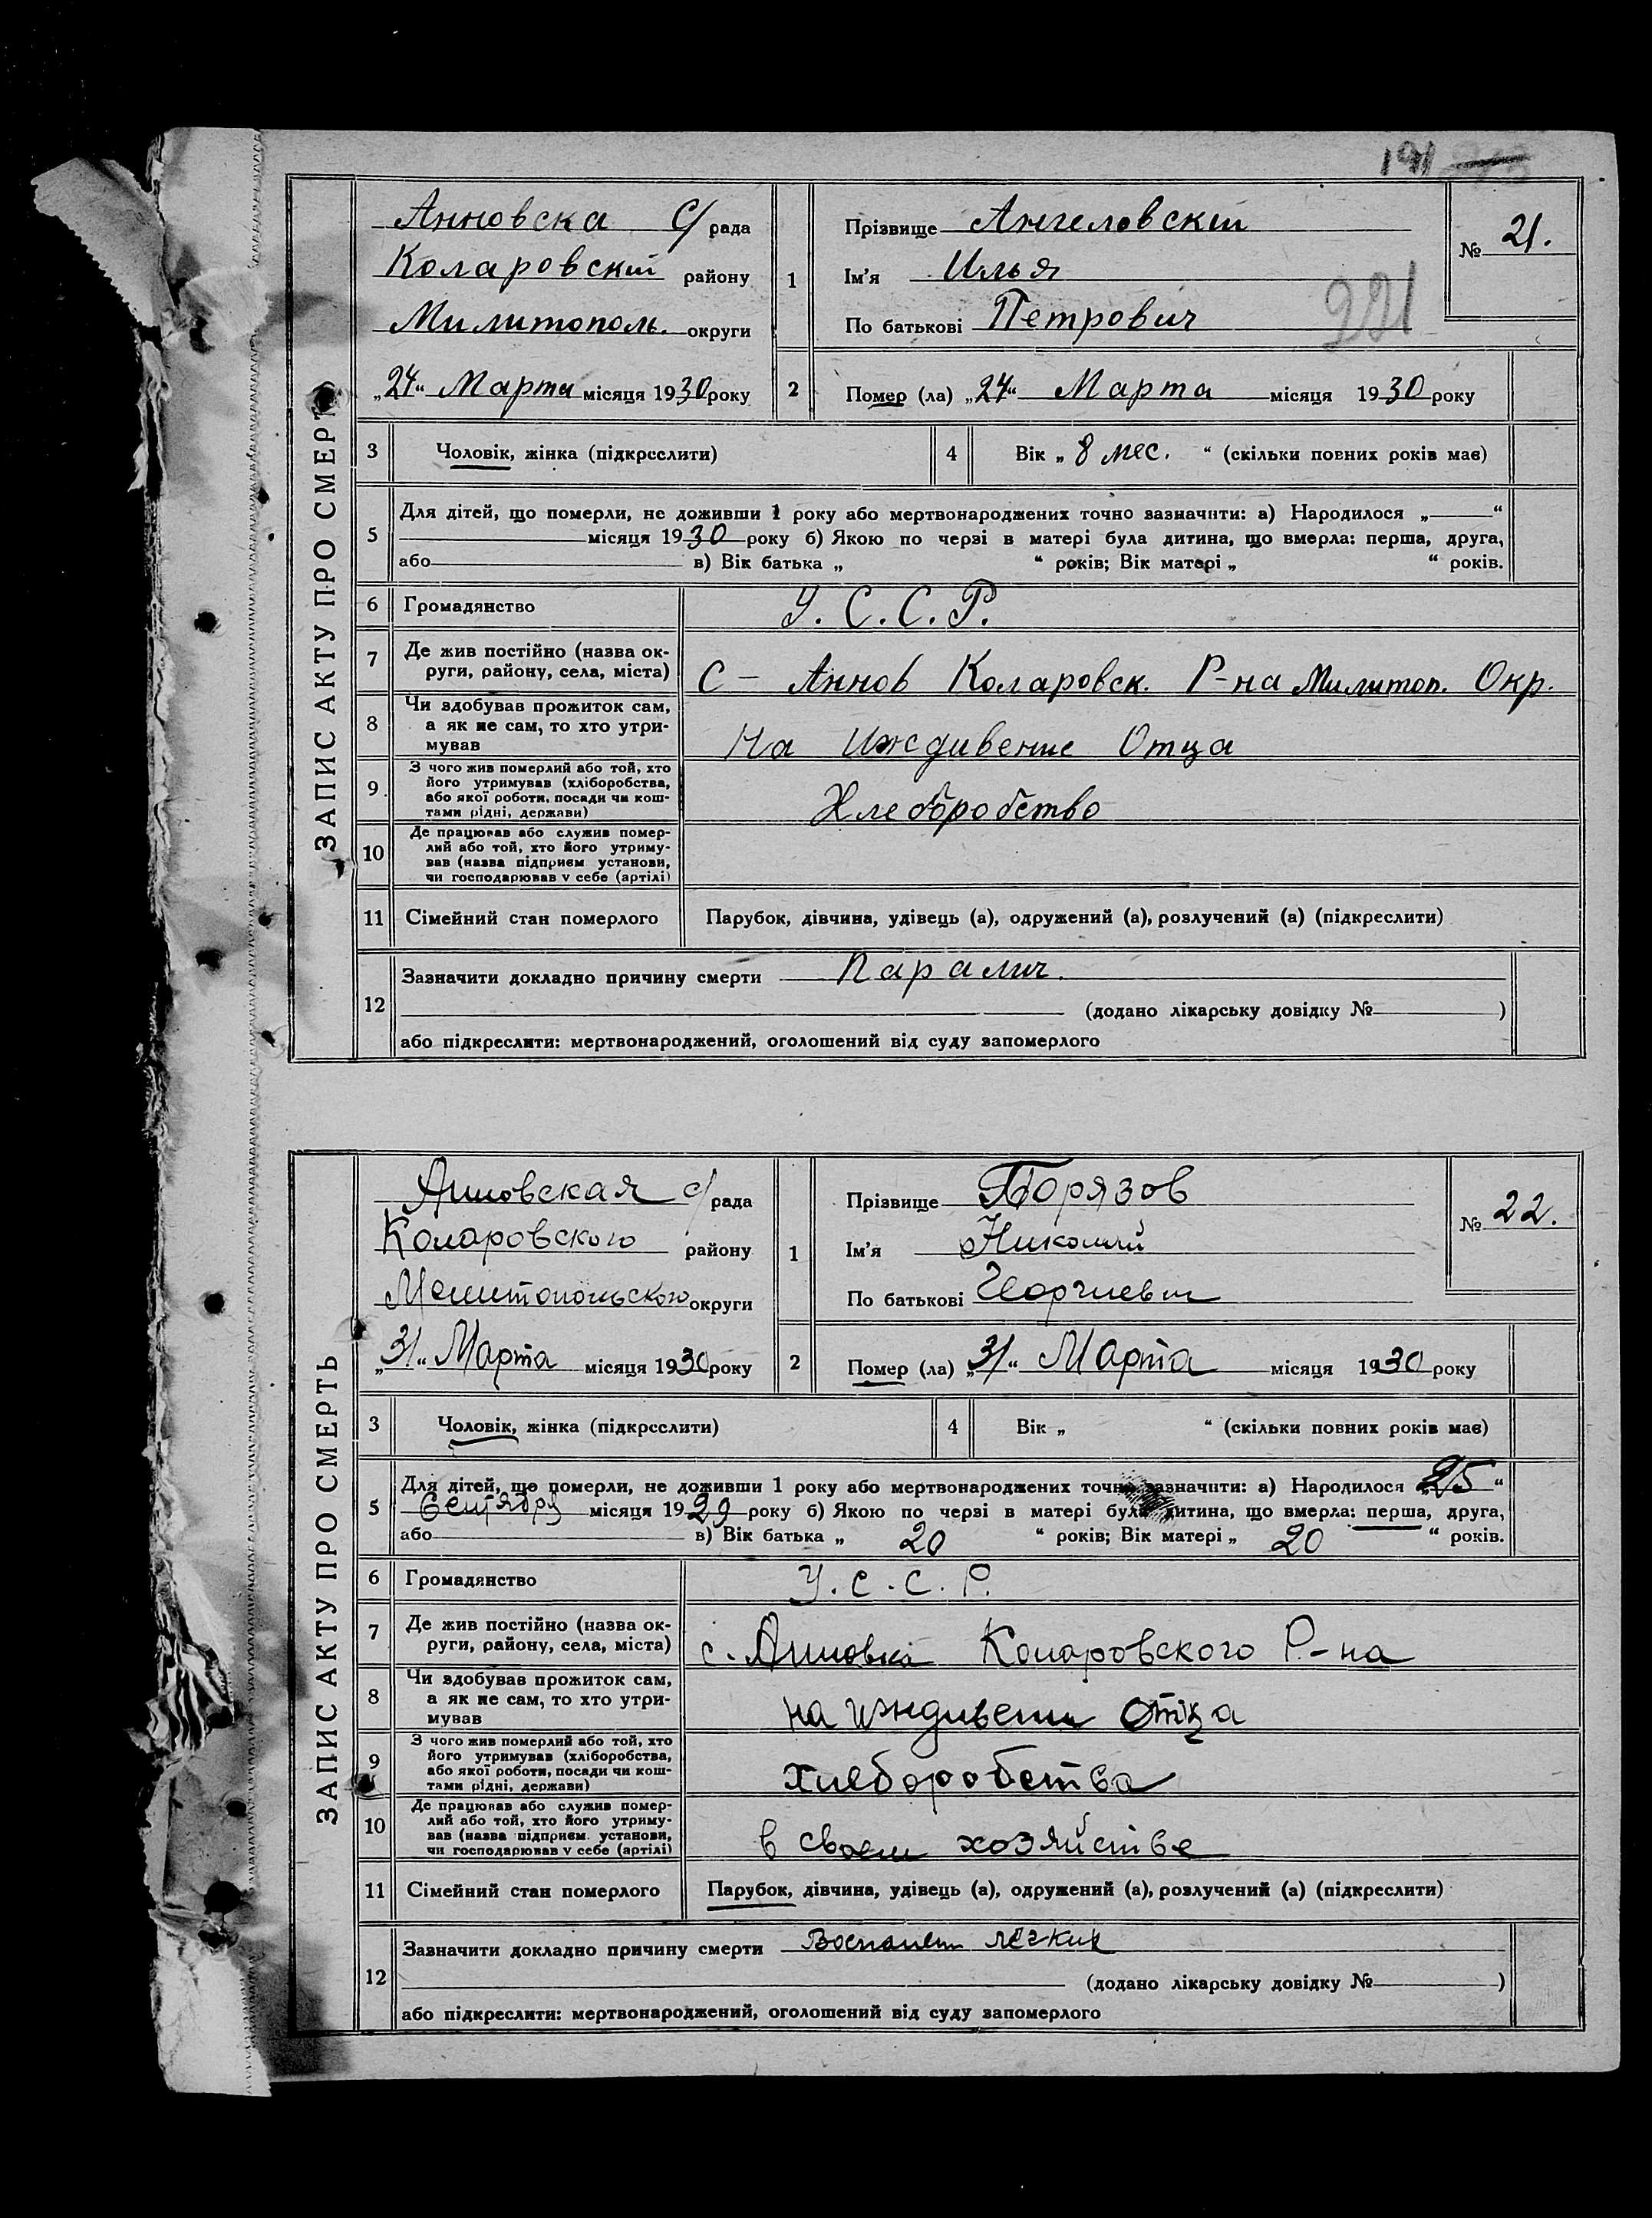 191
ЗАПИС АКТУ ПРО СМЕРТЬ
Анновска С/рада
Коларовский району
Милитополь. округи
„24“ Марта місяця 1930 року
1
Прізвище Ангеловский
Ім'я Илья
По батькові Петрович
№ 21.
221
2
Помер (ла) „24“ Марта місяця 1930 року
3 Чоловік, жінка (підкреслити)
4 Вік „8 мес.“ (скільки повних років має)
5 Для дітей, що померли, не доживши 1 року або мертвонароджених точно зазначити: а) Народилося „——“
місяця 1930 року б) Якою по черзі в матері була дитина, що вмерла: перша, друга,
або в) Вік батька „ “ років; Вік матері „ “ років.
6 Громадянство У.С.С.Р.
7 Де жив постійно (назва ок-
руги, району, села, міста) С- Аннов Коларовск. Р-на Милитоп. Окр.
8 Чи здобував прожиток сам,
а як не сам, то хто утри-
мував На Иждивение Отца
9 З чого жив померлий або той, хто
його утримував (хліборобства,
або якої роботи, посади чи кош-
тами рідні, держави) Хлебобробство
10 Де працював або служив помер-
лий або той, хто його утриму-
вав (назва підприєм установи,
чи господарював у себе (артілі)
11 Сімейний стан померлого Парубок, дівчина, удівець (а), одружений (а), розлучений (а) (підкреслити)
12 Зазначити докладно причину смерти Паралич.
(додано лікарську довідку № )
або підкреслити: мертвонароджений, оголошений від суду запомерлого
ЗАПИС АКТУ ПРО СМЕРТЬ
Анновская с/рада
Коларовского району
Мелитопольского округи
„31“ Марта місяця 1930 року
1
Прізвище
Ім'я Николай
По батькові Георгиевич
№ 22.
2
Помер (ла) „31“ Марта місяця 1930 року
3 Чоловік, жінка (підкреслити)
4 Вік „ “ (скільки повних років має)
5 Для дітей, що померли, не доживши 1 року або мертвонароджених точно зазначити: а) Народилося „25“
Сентября місяця 1929 року б) Якою по черзі в матері була дитина, що вмерла: перша, друга,
або в) Вік батька „ 20 “ років; Вік матері „ 20 “ років.
6 Громадянство У.С.С.Р.
7 Де жив постійно (назва ок-
руги, району, села, міста) с. Анновка Коларовского Р-на
8 Чи здобував прожиток сам,
а як не сам, то хто утри-
мував на иждивени отца
9 З чого жив померлий або той, хто
його утримував (хліборобства,
або якої роботи, посади чи кош-
тами рідні, держави) хлеборобства
10 Де працював або служив помер-
лий або той, хто його утриму-
вав (назва підприєм. установи,
чи господарював у себе (артілі) в своем хозяйстве
11 Сімейний стан померлого Парубок, дівчина, удівець (а), одружений (а), розлучений (а) (підкреслити)
12 Зазначити докладно причину смерти Воспален легких
(додано лікарську довідку № )
або підкреслити: мертвонароджений, оголошений від суду запомерлого